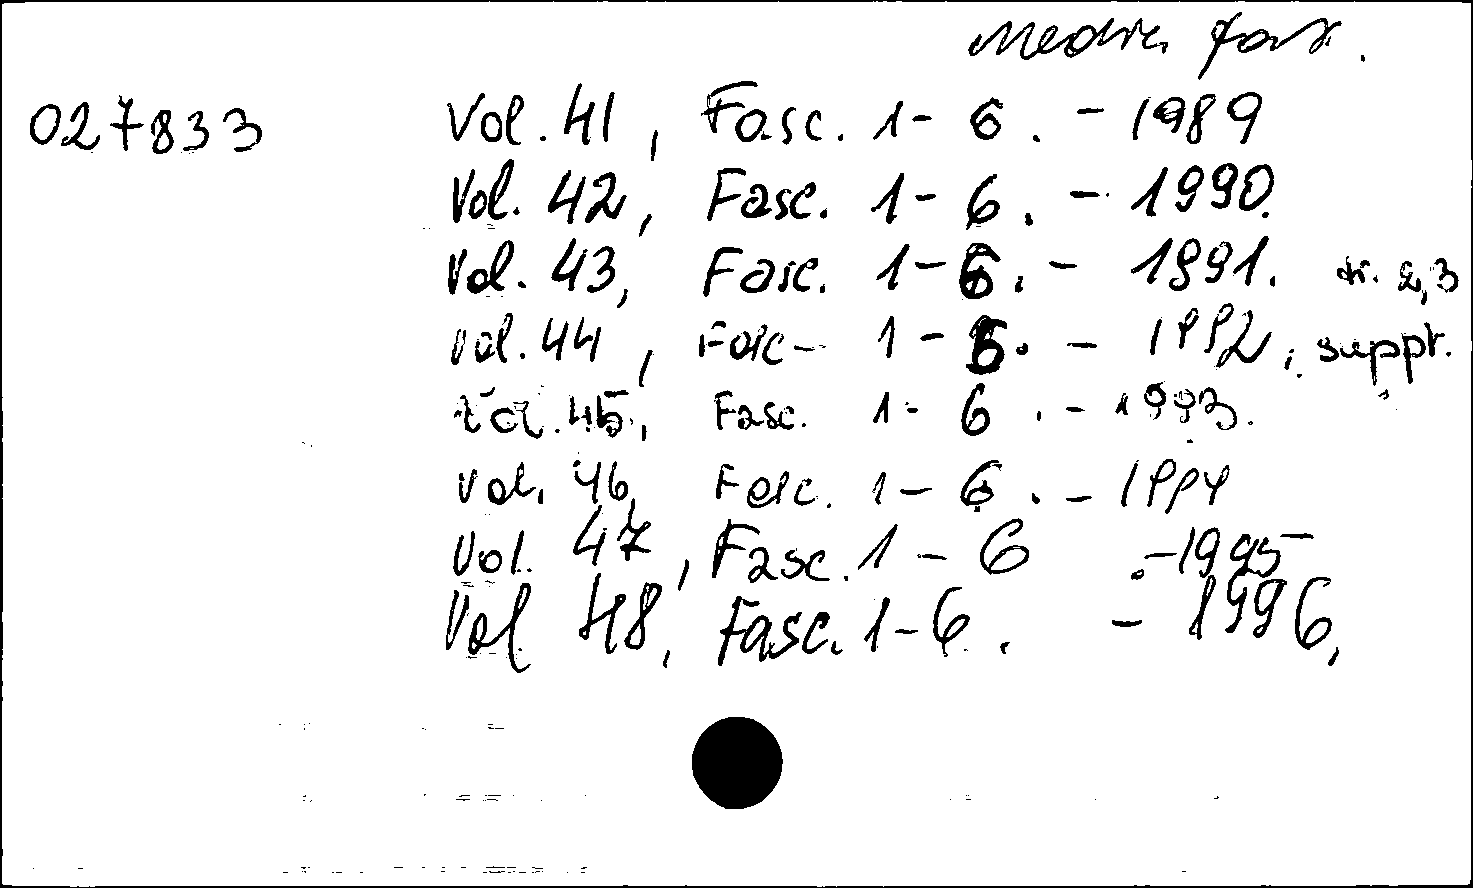 Media fas.
027833 Vol. 41, Fasc. 1-6. - 1989
Vol. 42, Fasc. 1-6. - 1990.
Vol. 43, Fasc. 1-6. - 1991. 2,3
Vol. 44, Fasc - 1-6. - 1992, suppt.
Vol. 45, Fasc. 1-6. - 1993.
Vol. 46, Fasc. 1-6. - 1994
Vol. 47, Fasc. 1-6 .-1995
Vol 48, Fasc. 1-6. - 1996,